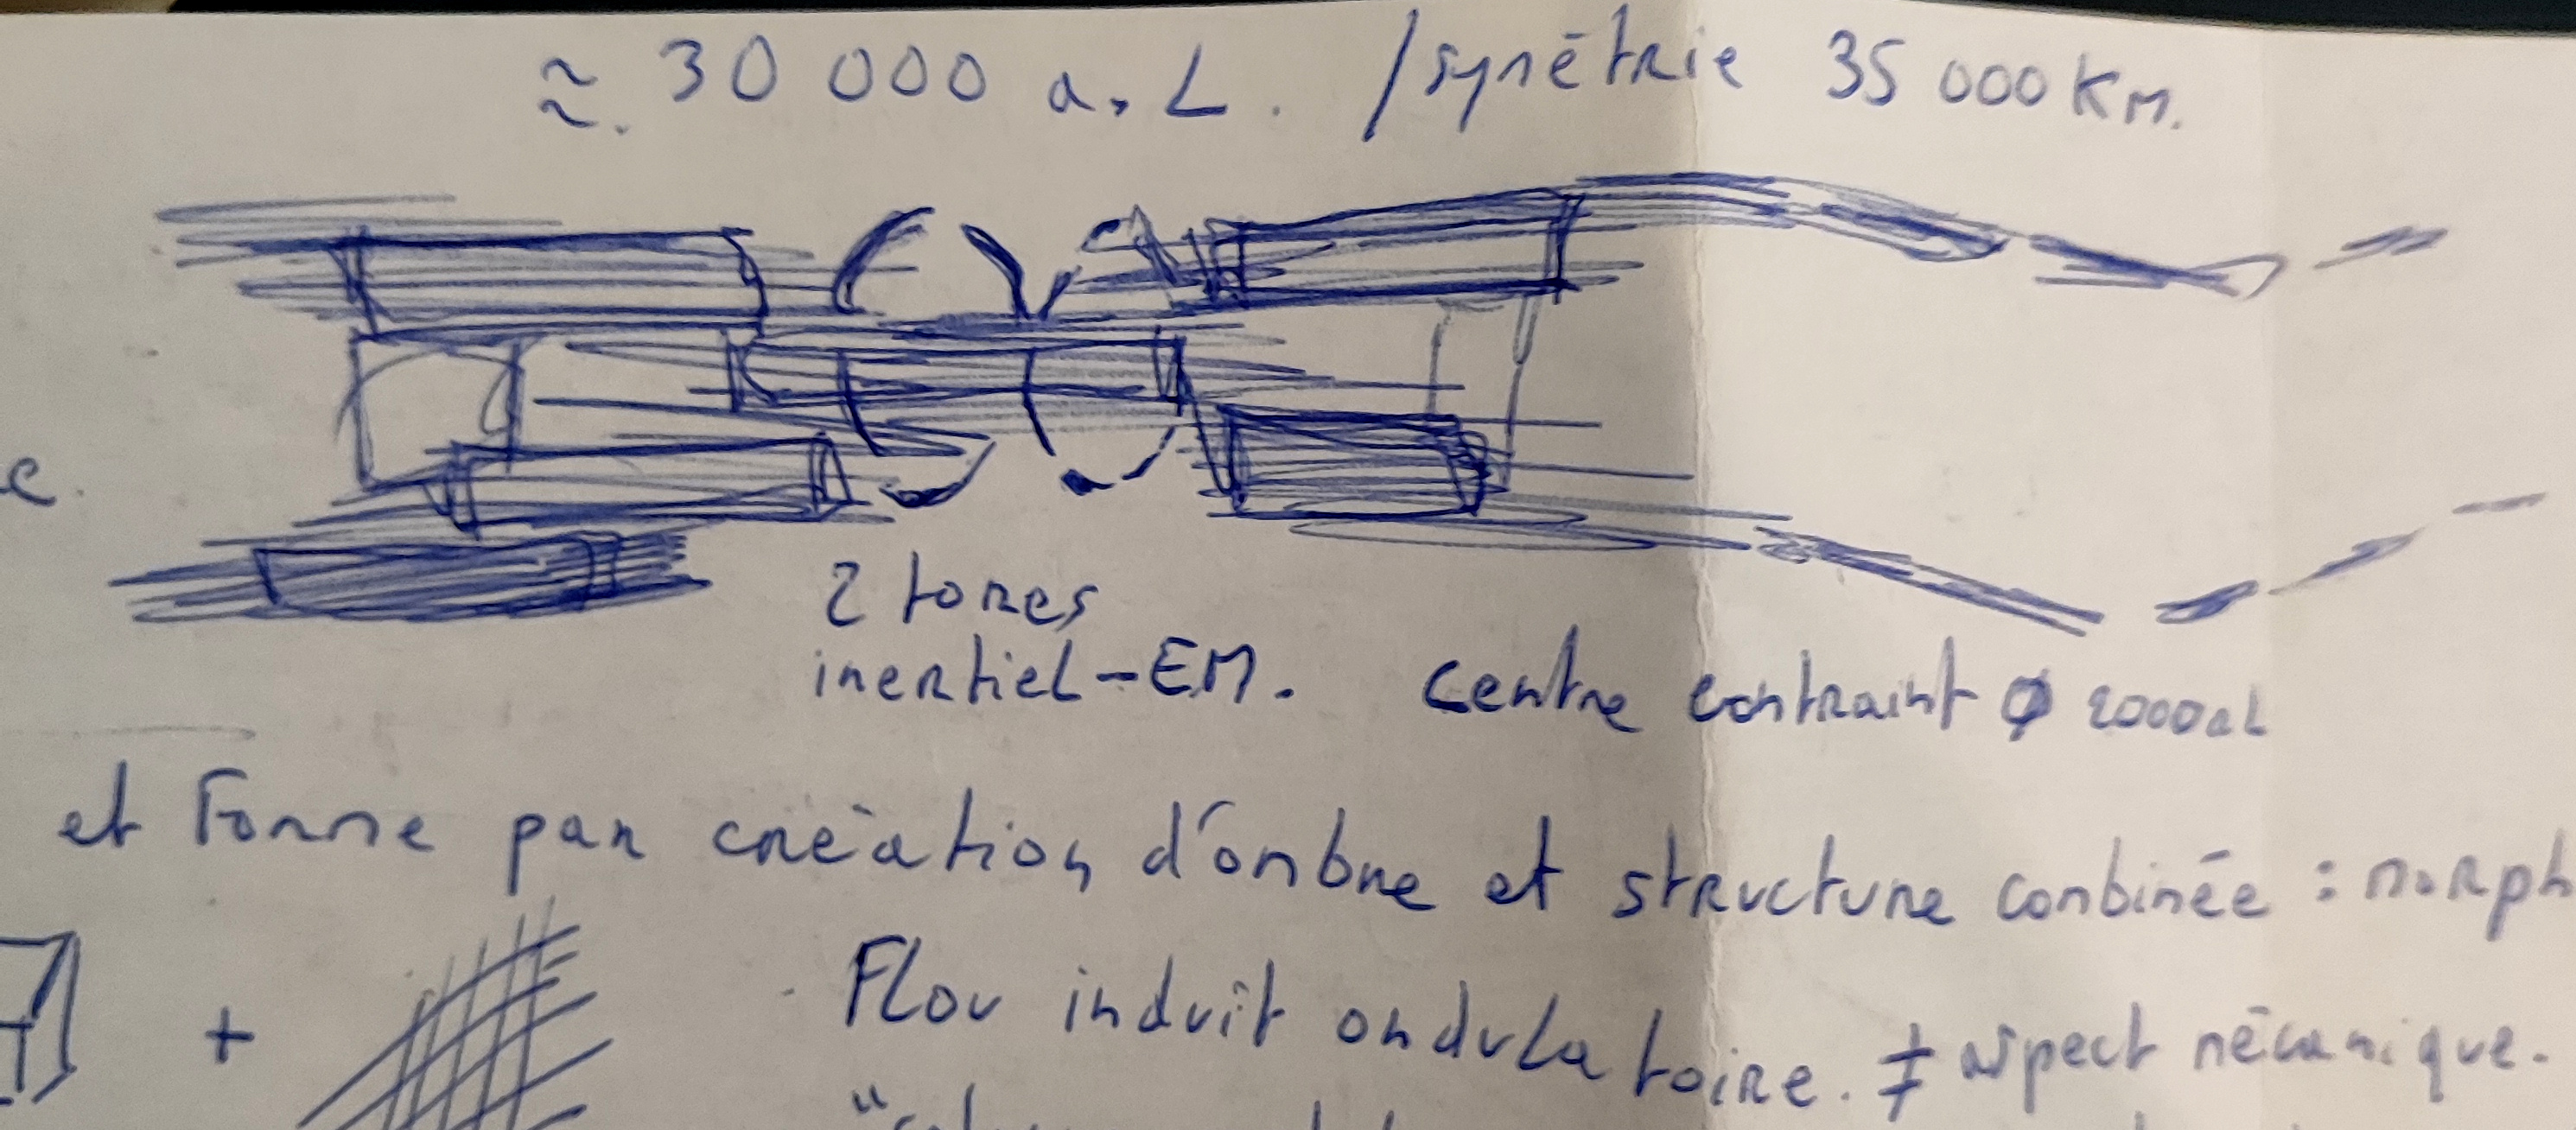 ≈. 30 000 a.L. /synétrie 35 000 Km.
e.
2 tores
inertiel-EM. centre contraint ϕ 2000aL
et Forme par création d'ombre et structure combinée : morph
+ Flou induit ondulatoire. ≠ aspect mécanique.